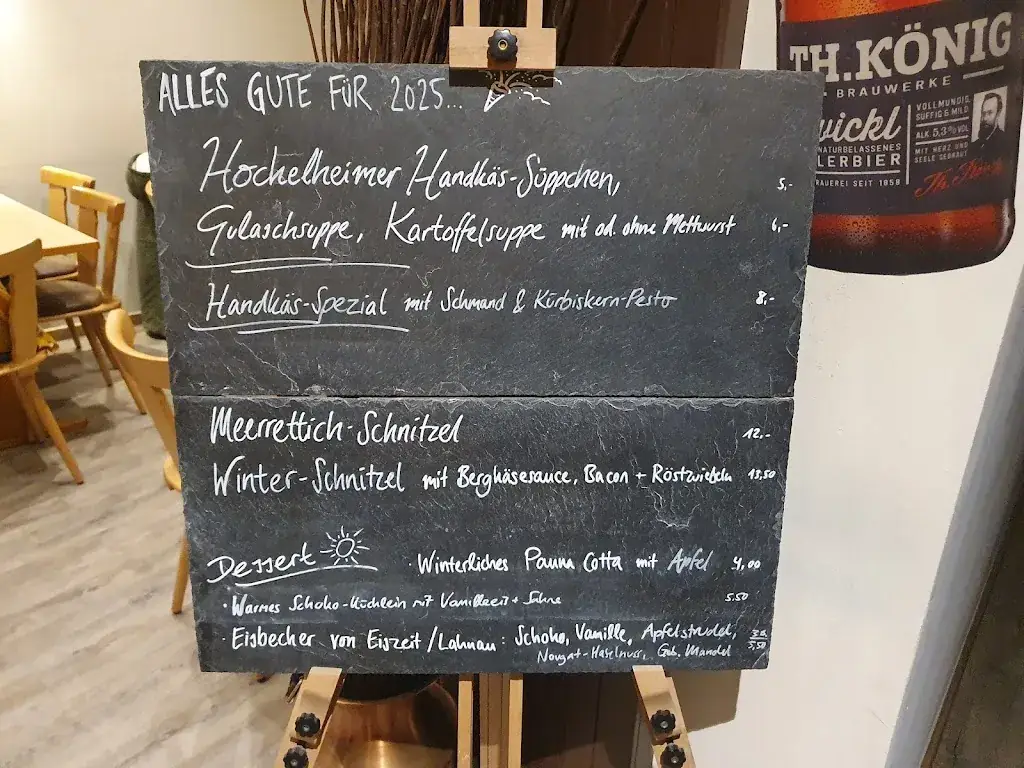 ALLES GUTE FÜR 2025...
Hochelheimer Handkäs-Süppchen, 5,-
Gulaschsuppe, Kartoffelsuppe mit od. ohne Mettwurst 6,-
Handkäs-Spezial mit Schmand & Kürbiskern-Pesto 8,-
Meerrettich-Schnitzel 12,-
Winter-Schnitzel mit Bergkäsesauce, Bacon + Röstzwiebeln 13,50
Dessert · Winterliches Panna Cotta mit Apfel 4,00
· Warmes Schoko-Küchlein mit Vanilleeis + Sahne 5.50
· Eisbecher von Eiszeit/Lahnau: Schoko, Vanille, Apfelstrudel,
Nougat-Haselnuss, Geb. Mandel 5,50
TH.KÖNIG
BRAUWERKE
wickl
NATURBELASSENES
LERBIER
BRAUEREI SEIT 1858
VOLLMUNDIG,
SÜFFIG & MILD
ALK. 5,3% VOL
MIT HERZ UND
SEELE GEBRAUT
Th. König